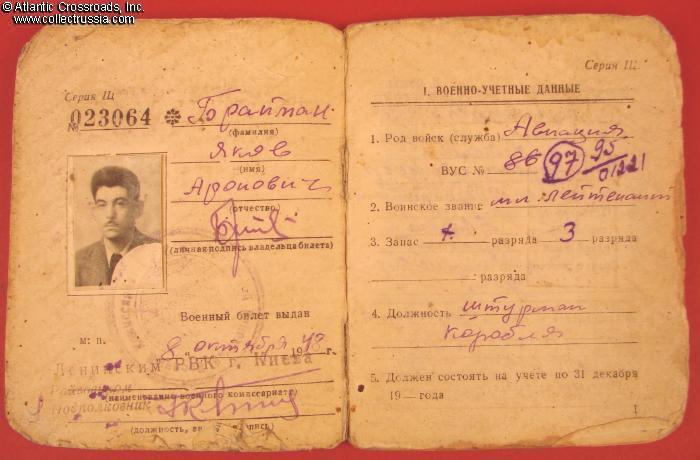 © Atlantic Crossroads, Inc.
www.collectrussia.com
Серия Щ
№ 023064
Брайтман
(фамилия)
Яков
(имя)
Аронович
(отчество)
(личная подпись владельца билета)
Военный билет выдан
М. п.
8 октября 1948 г.
Ленинским РВК г. Киева
(наименование военного комиссариата)
Райвоенком
Подполковник
(должность, подпись)
Серия Щ
I. ВОЕННО-УЧЕТНЫЕ ДАННЫЕ
1. Род войск (служба) Авиация
ВУС № 86 97 95
2. Воинское звание мл. лейтенант
3. Запас разряда 3 разряда
разряда
4. Должность штурман
корабля
5. Должен состоять на учете по 31 декабря
19 — года
1